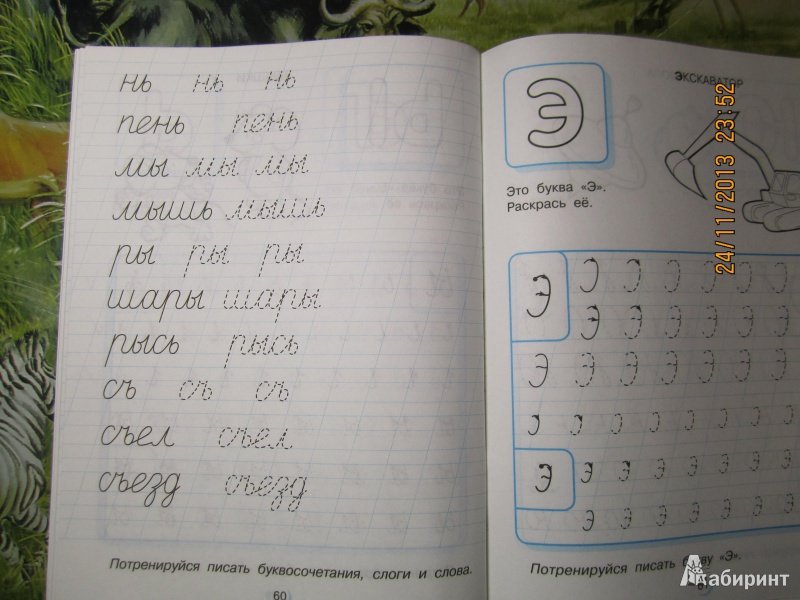 нь нь нь
пень пень
мы мы мы
мышь мышь
ры ры ры
шары шары
рысь рысь
съ съ съ
съел съел
съезд съезд
Потренируйся писать буквосочетания, слоги и слова.
60
Э
ЭКСКАВАТОР
Это буква «Э».
Раскрась её.
Э Э Э Э Э Э
Э Э Э Э Э
Э Э Э Э Э Э
э э э э э э
Потренируйся писать букву «Э».
24/11/2013 23:52
Лабиринт